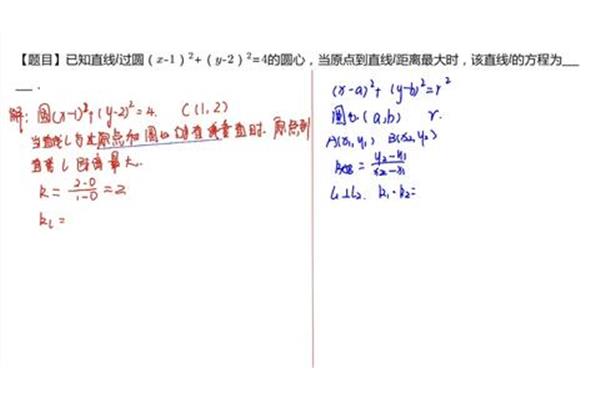 【题目】已知直线l过圆(x-1)²+(y-2)²=4的圆心，当原点到直线l距离最大时，该直线l的方程为__
__.
解: 圆(x-1)²+(y-2)²=4. C(1,2)
当直线l与过原点和圆心的直线垂直时. 原点到
直线l距离最大.
k=\frac{2-0}{1-0}=2
k_l=
(x-a)²+(y-b)²=r²
圆心(a,b) r.
A(x₁,y₁) B(x₂,y₂)
k_{AB}=\frac{y₂-y₁}{x₂-x₁}
l₁⊥l₂. k₁·k₂=